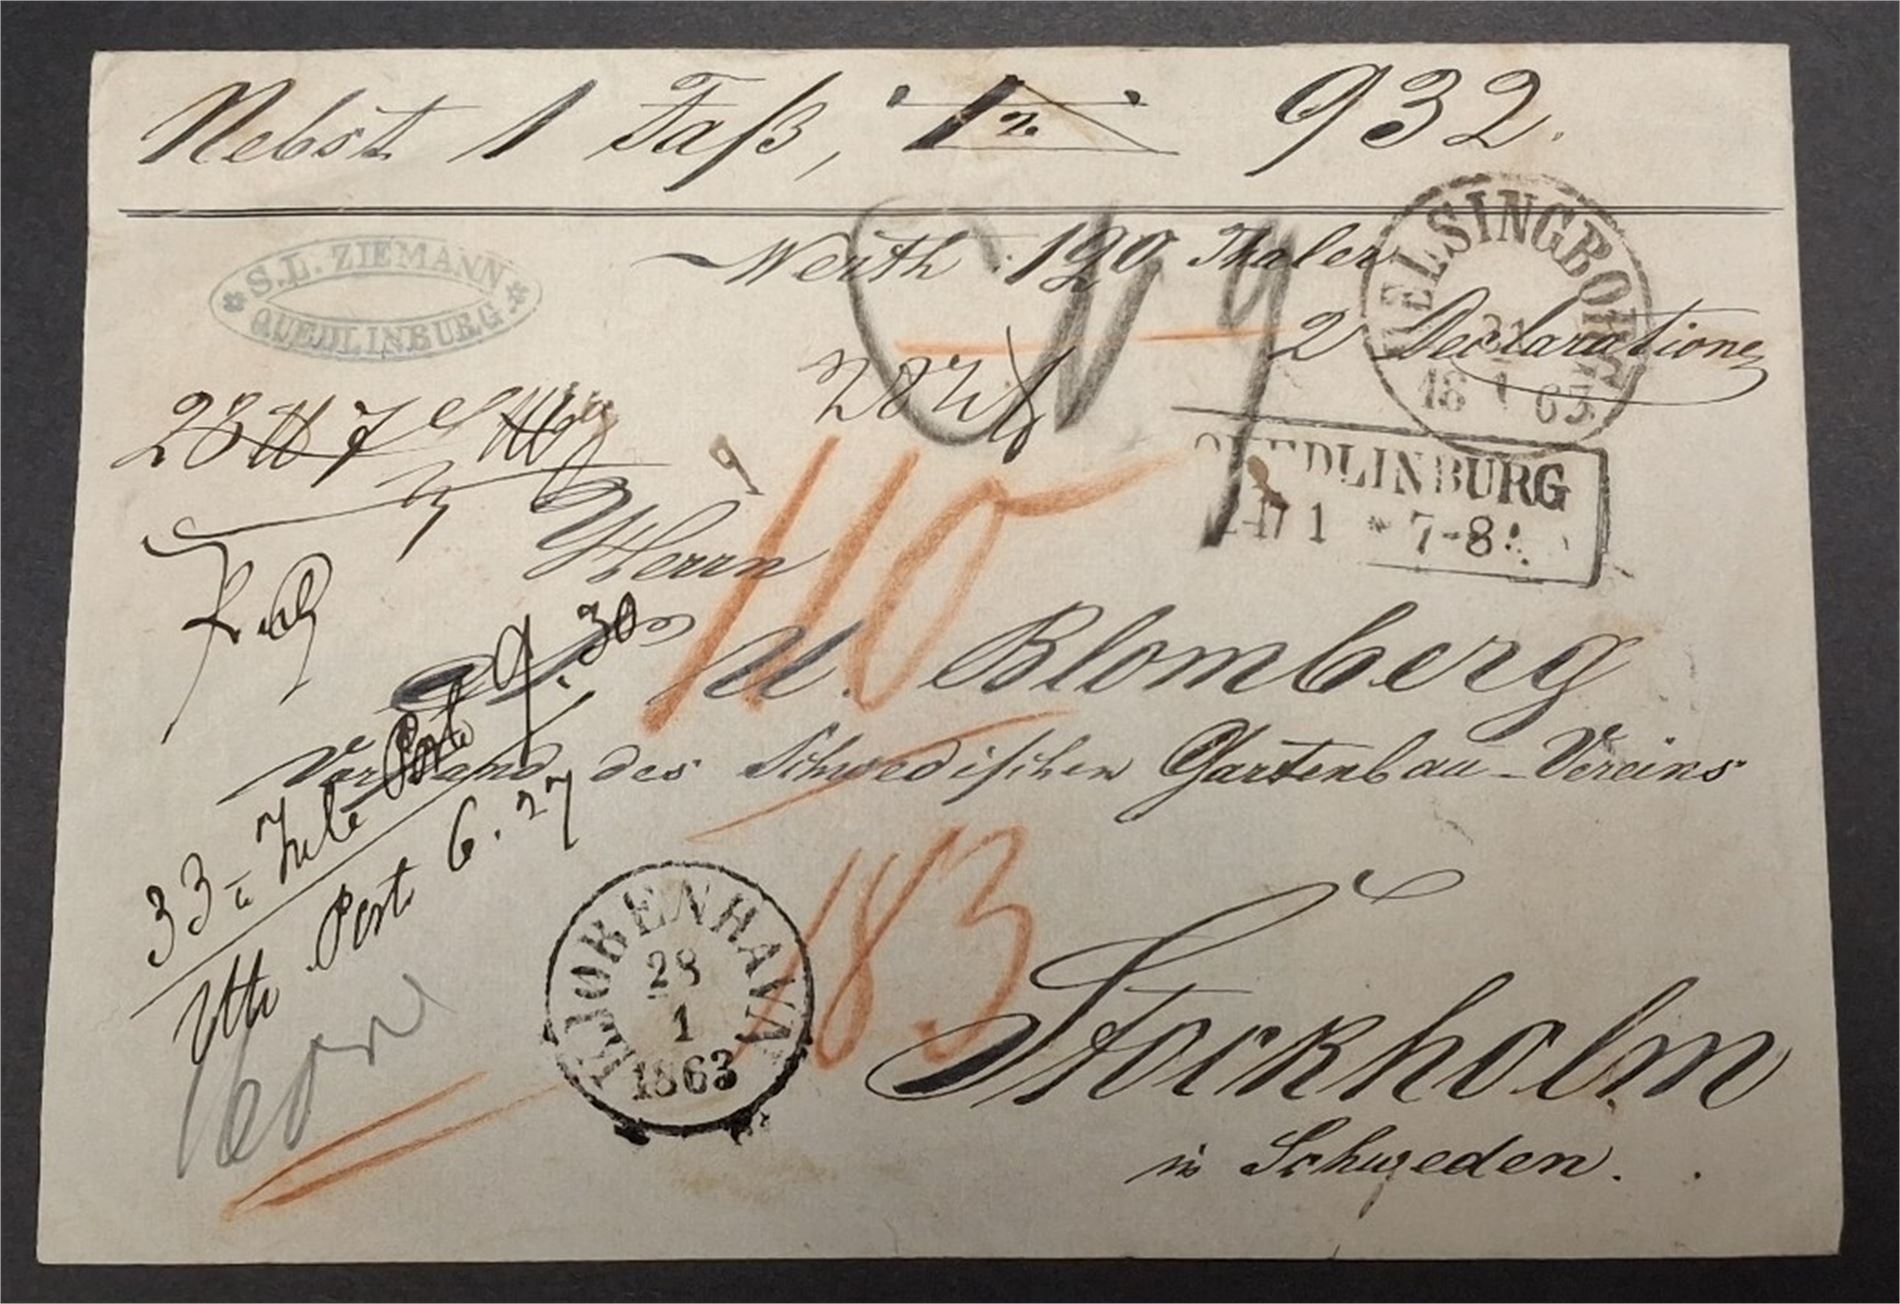 Nebst 1 Faß, 932.
Werth 190 Thaler
2 Declarationen
S.L. ZIEMANN
QUEDLINBURG
HELSINGBORG
31
18 1 63
QUEDLINBURG
1 * 7-8
28
110
Herrn
U. Blomberg
Vorstand des Schwedischen Gartenbau-Vereins
9.30
33
Port 6.27
KJOBENHAVN
28
1
1863
183
Stockholm
in Schweden.